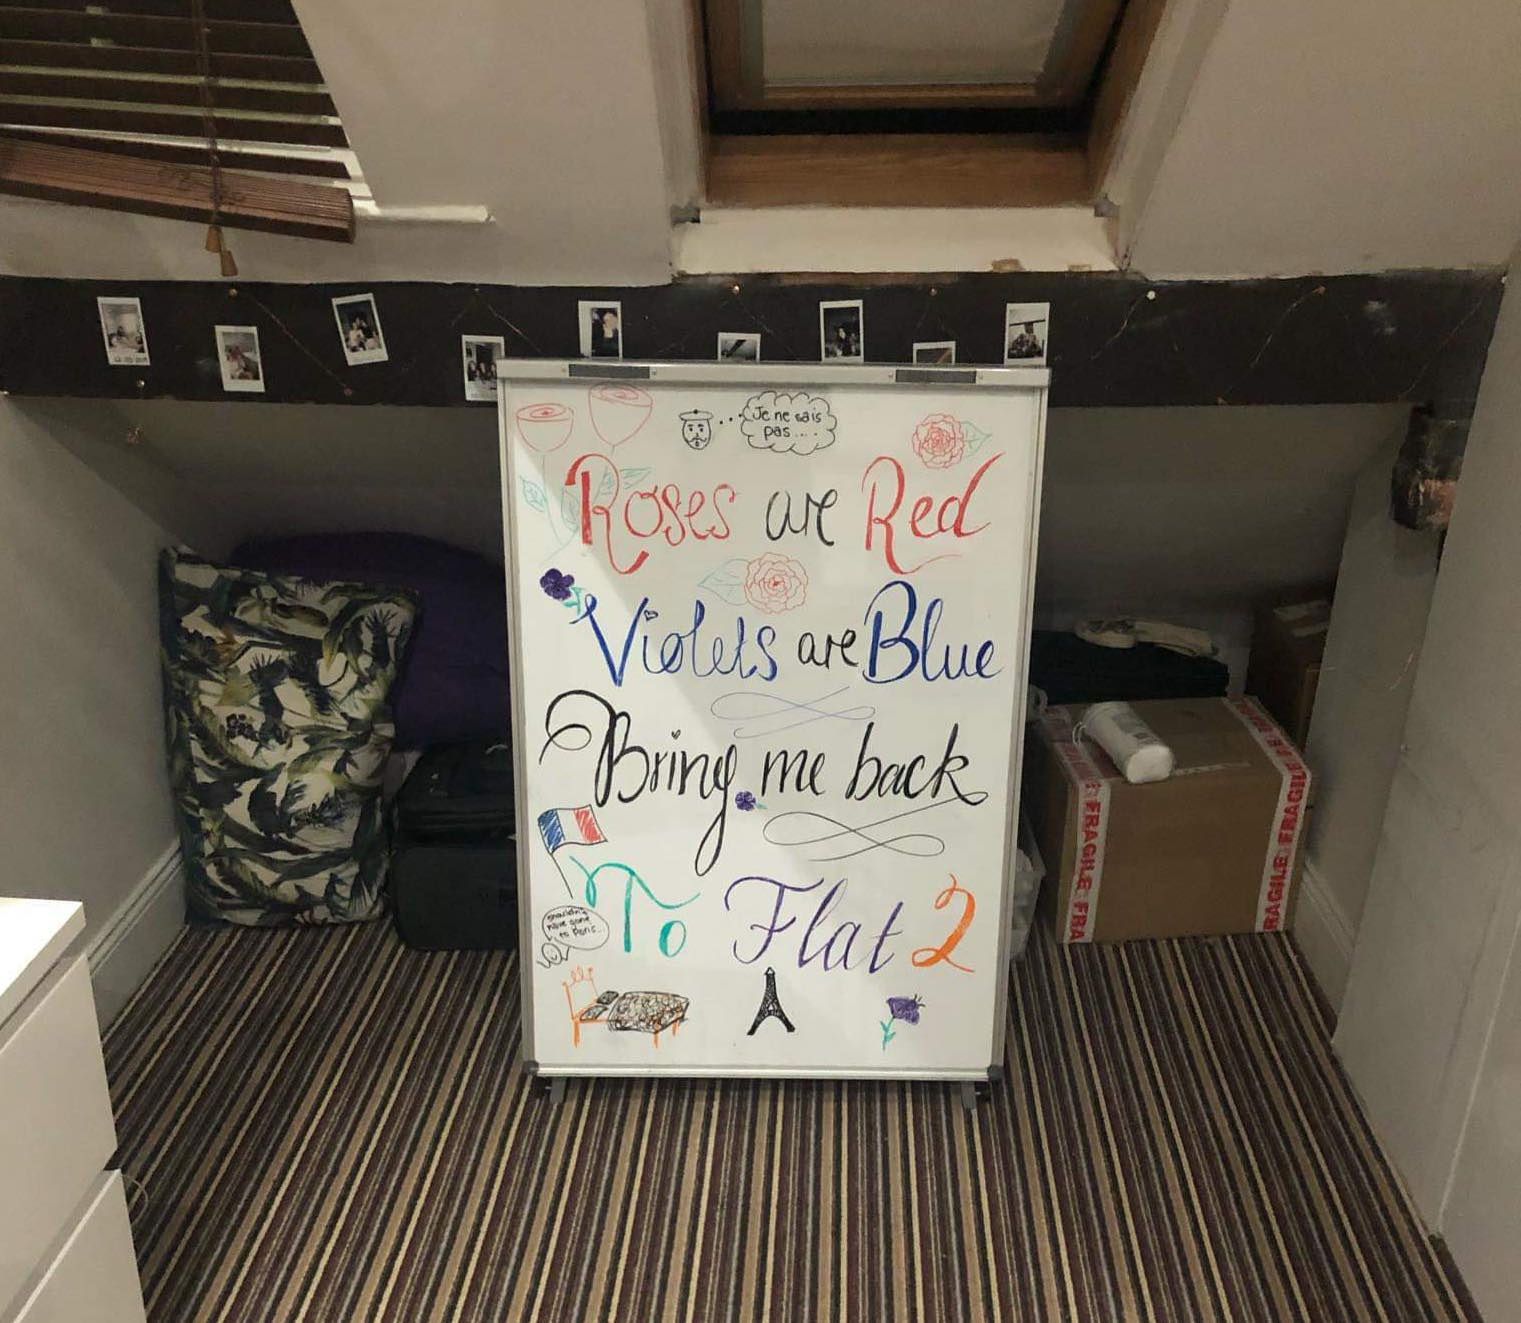 Je ne sais
pas....
Roses are Red
Violets are Blue
Bring me back
To Flat 2
Shouldn't
have gone
to Paris...
FRAGILE FRA
FRAGILE
FRAGILE